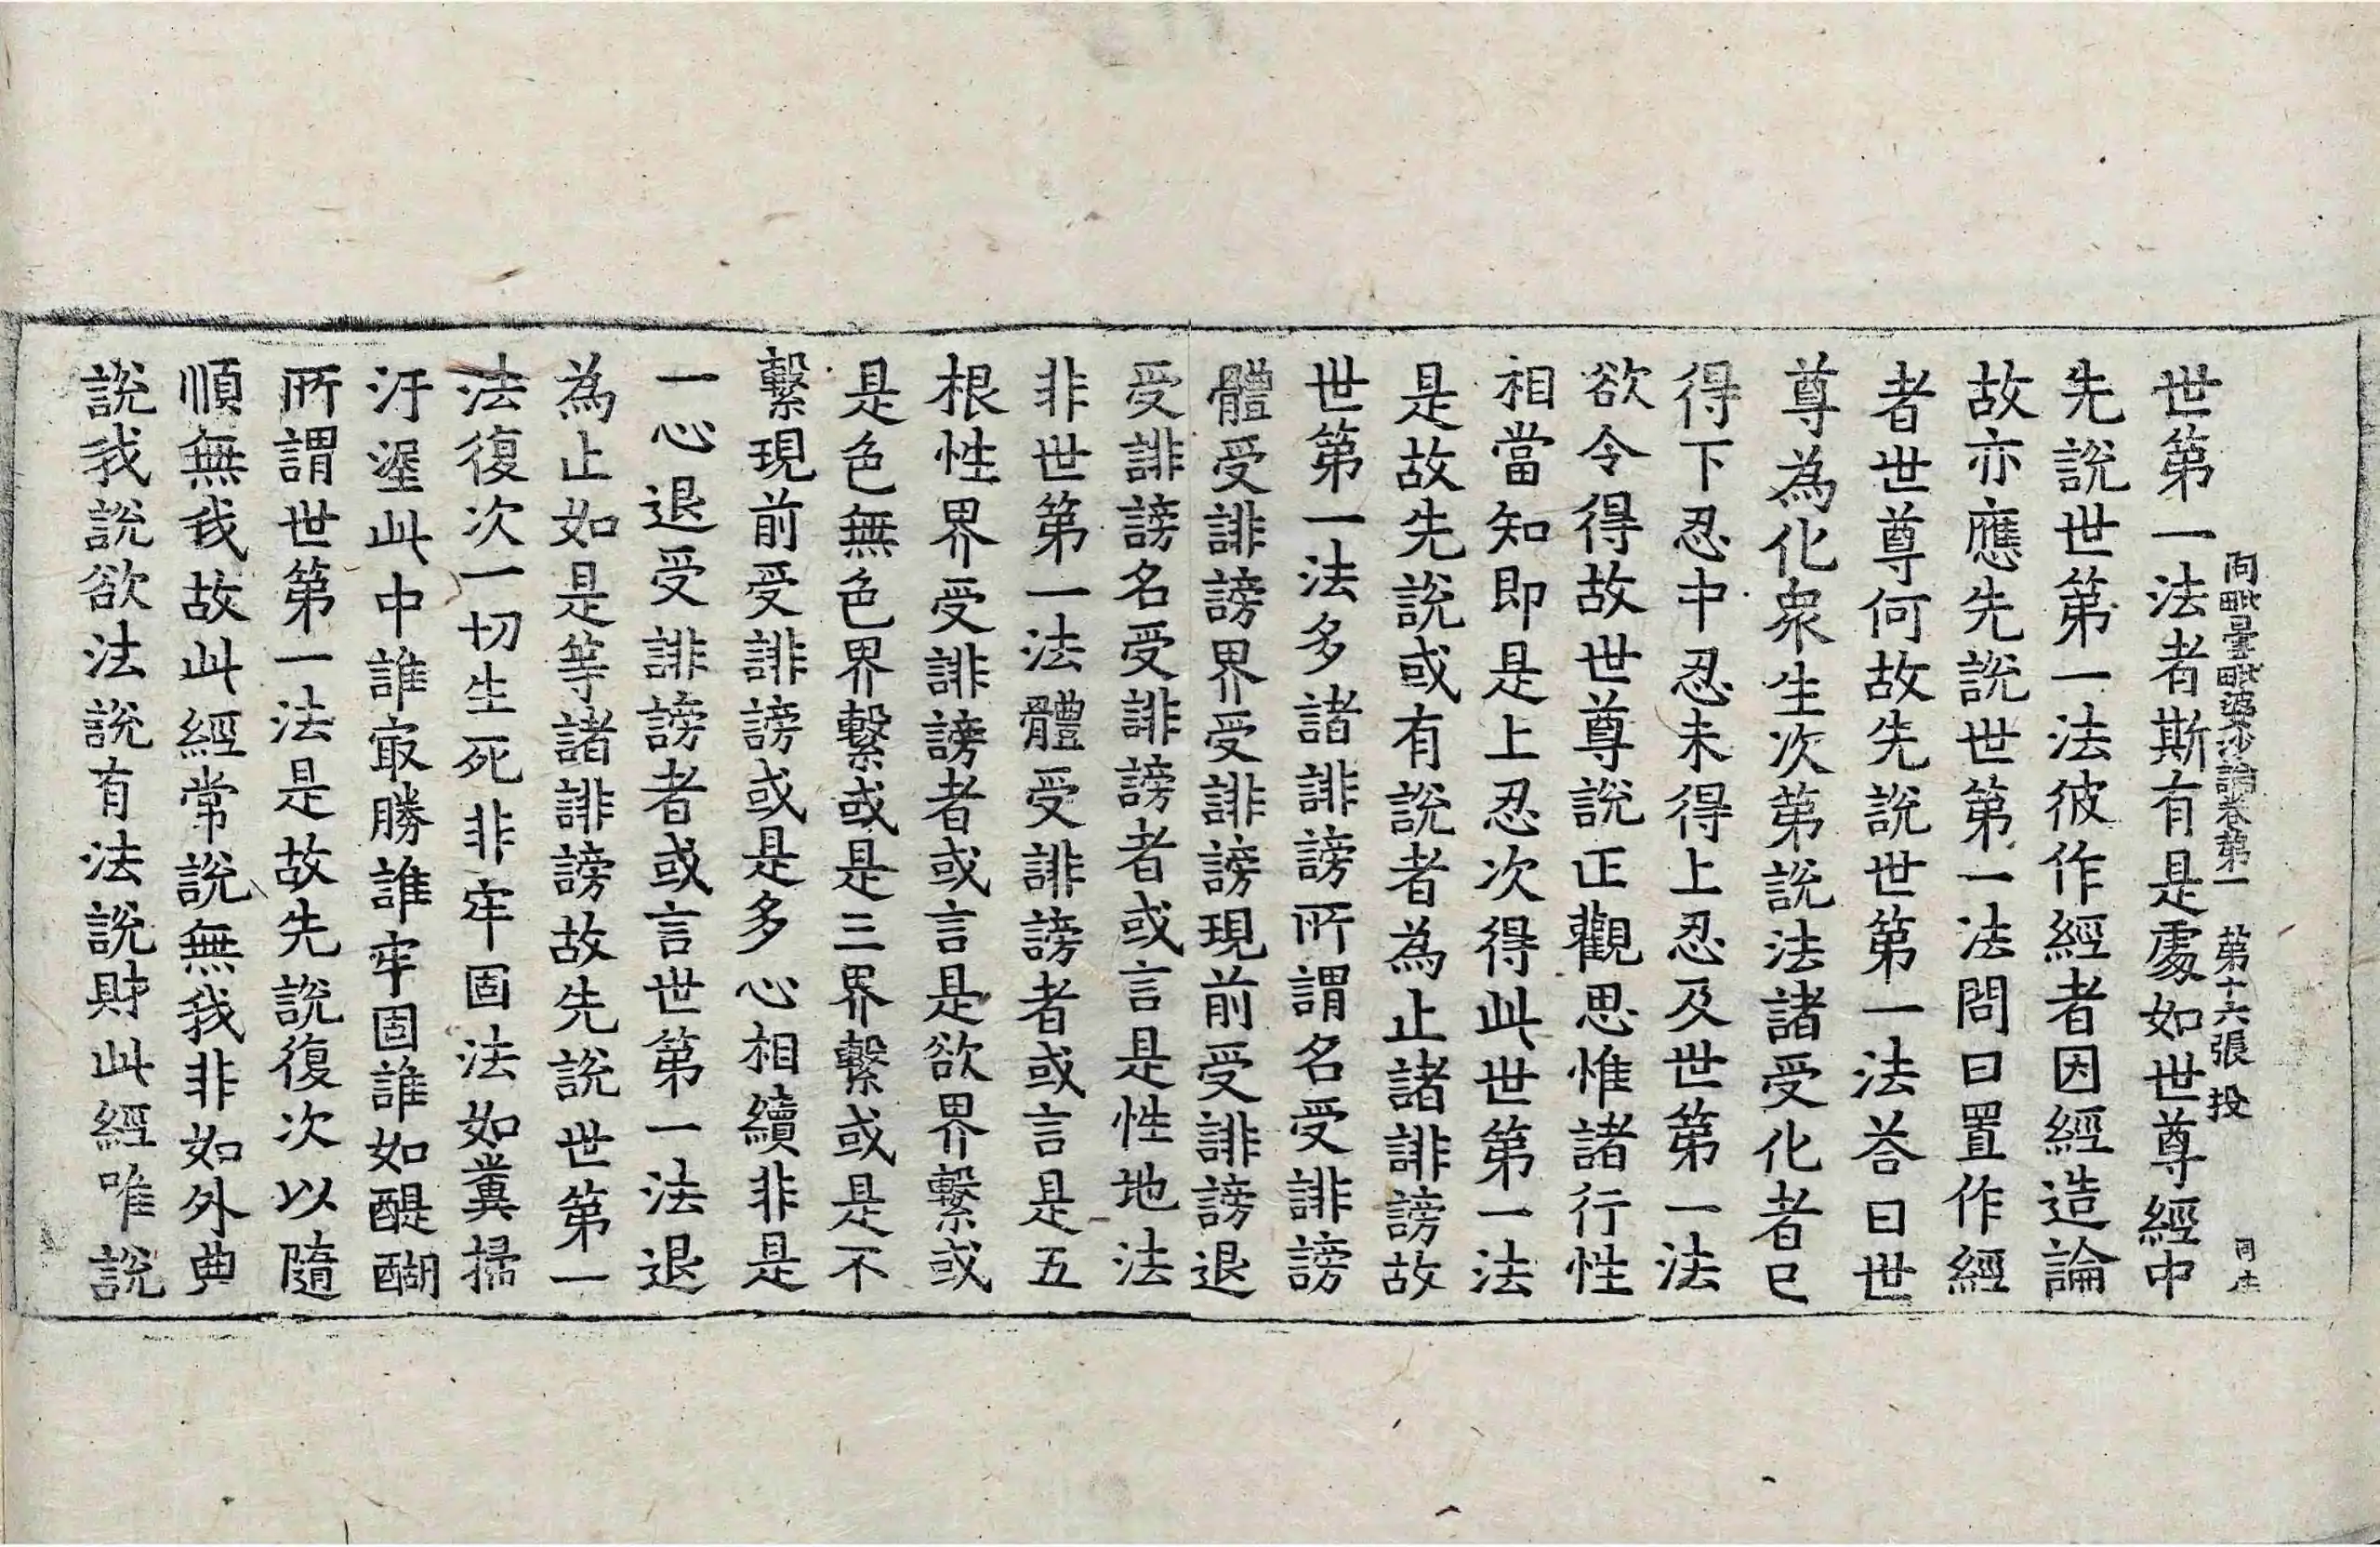 阿毗曇毗婆沙論卷第一 第十六張 投
世第一法者斯有是處如世尊經中
先說世第一法彼作經者因經造論
故亦應先說世第一法問曰置作經
者世尊何故先說世第一法荅曰世
尊為化衆生次第說法諸受化者已
得下忍中忍未得上忍及世第一法
欲令得故世尊說正觀思惟諸行性
相當知即是上忍次得此世第一法
是故先說或有說者為止諸誹謗故
世第一法多諸誹謗所謂名受誹謗
體受誹謗界受誹謗現前受誹謗退
受誹謗名受誹謗者或言是性地法
非世第一法體受誹謗者或言是五
根性界受誹謗者或言是欲界繫或
是色無色界繫或是三界繫或是不
繫現前受誹謗或是多心相續非是
一心退受誹謗者或言世第一法退
為止如是等諸誹謗故先說世第一
法復次一切生死非牢固法如糞掃
汙渥此中誰㝡勝誰牢固誰如醍醐
所謂世第一法是故先說復次以隨
順無我故此經常說無我非如外典
說我說欲法說有法說財此經唯說